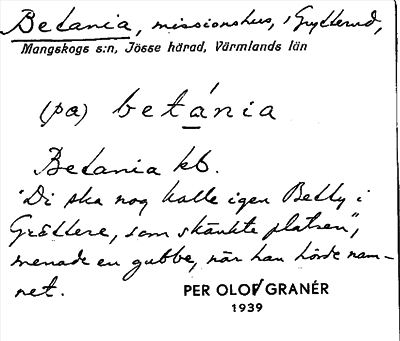 Betania, missionshus, i Grytterud,
Mangskogs s:n, Jösse härad, Värmlands län
(pa) betánia
Betania kb.
"Di ska nog kalle igen Betty i
Gröttere, som skänkte platsen",
menade en gubbe, när han hörde nam-
net.
PER OLOF GRANÉR
1939